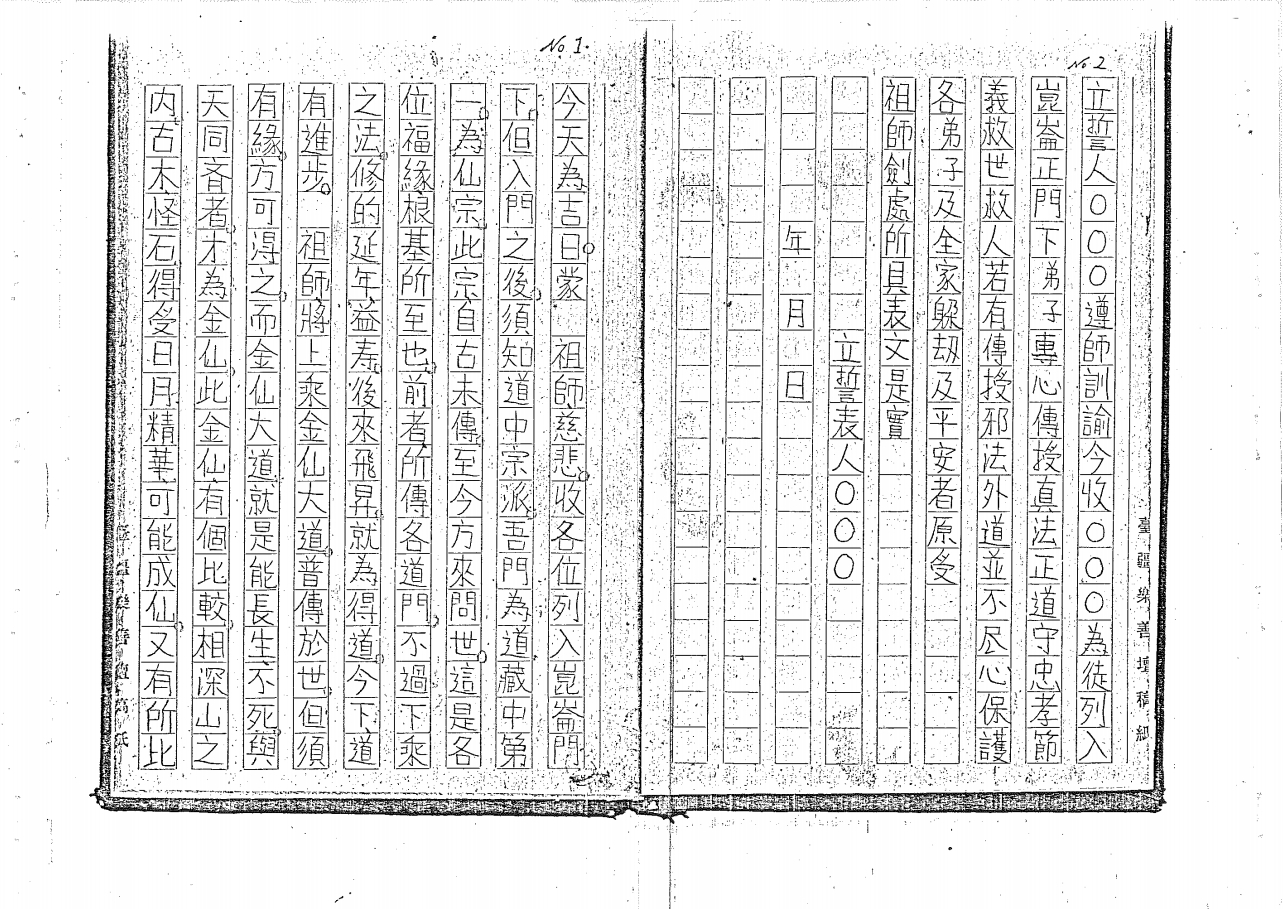 No 2
立誓人○○○遵師訓諭今收○○○為徒列入
崑崙正門下弟子專心傳授真法正道守忠孝節
義救世救人若有傳授邪法外道並不尽心保護
各弟子及全家躲劫及平安者原受
祖師劍處所具表文是實
立誓表人○○○
年 月 日
臺疆樂善壇稿紙
No 1.
今天為吉日。蒙 祖師慈悲。收各位列入崑崙門
下。但入門之後。須知道中宗派。吾門為道藏中第
一。為仙宗。此宗自古未傳。至今方來問世。這是各
位福緣根基所至也。前者所傳各道門。不過下乘
之法。修的延年益寿。後來飛昇。就為得道。今下道
有進步。 祖師將上乘金仙大道。普傳於世。但須
有緣。方可得之。而金仙大道就是能長生不死。與
天同斉者。才為金仙。此金仙有個比較。相深山之
內。古木怪石。得受日月精華。可能成仙。又有所比
臺疆樂善壇稿紙